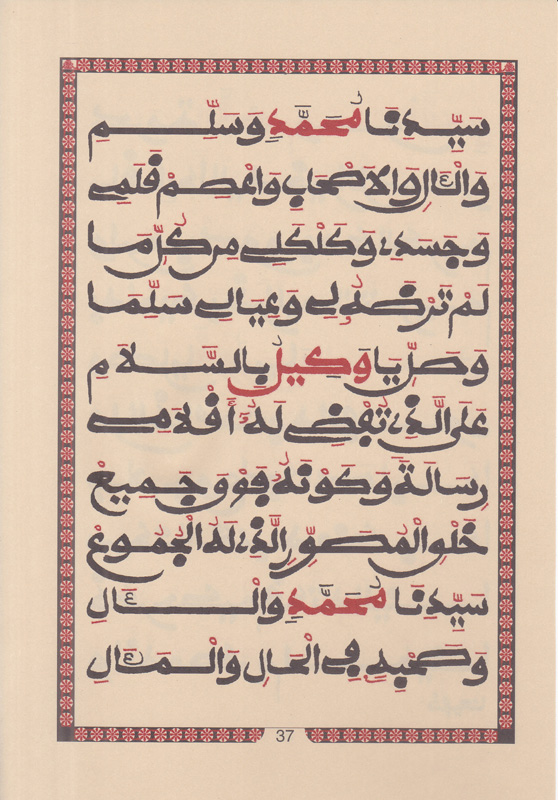 سَيِّدِنَا مُحَمَّدٍ وَسَلِّمِ
وَالْآلِ وَالَاصْحَابِ وَاعْصِمْ قَلَمِي
وَجَسَدِي وَكَلْكَلِي مِن كُلِّ مَا
لَمْ تَرْضَهُ لِي وَعِيَالِي سَلِّمَا
وَصَلِّ يَا وَكِيلُ بِالسَّلَامِ
عَلَى الَّذِي تَقْضِي لَهُ أَقْلَامِي
رِسَالَةً وَكَوْنَهُ فَوْقَ جَمِيعْ
خَلْقِ الْمُصَوِّرِ الَّذِي لَهُ الْجُمُوعْ
سَيِّدِنَا مُحَمَّدٍ وَالْآلِ
وَصَحْبِهِ فِي الْحَالِ وَالْمَآلِ
37